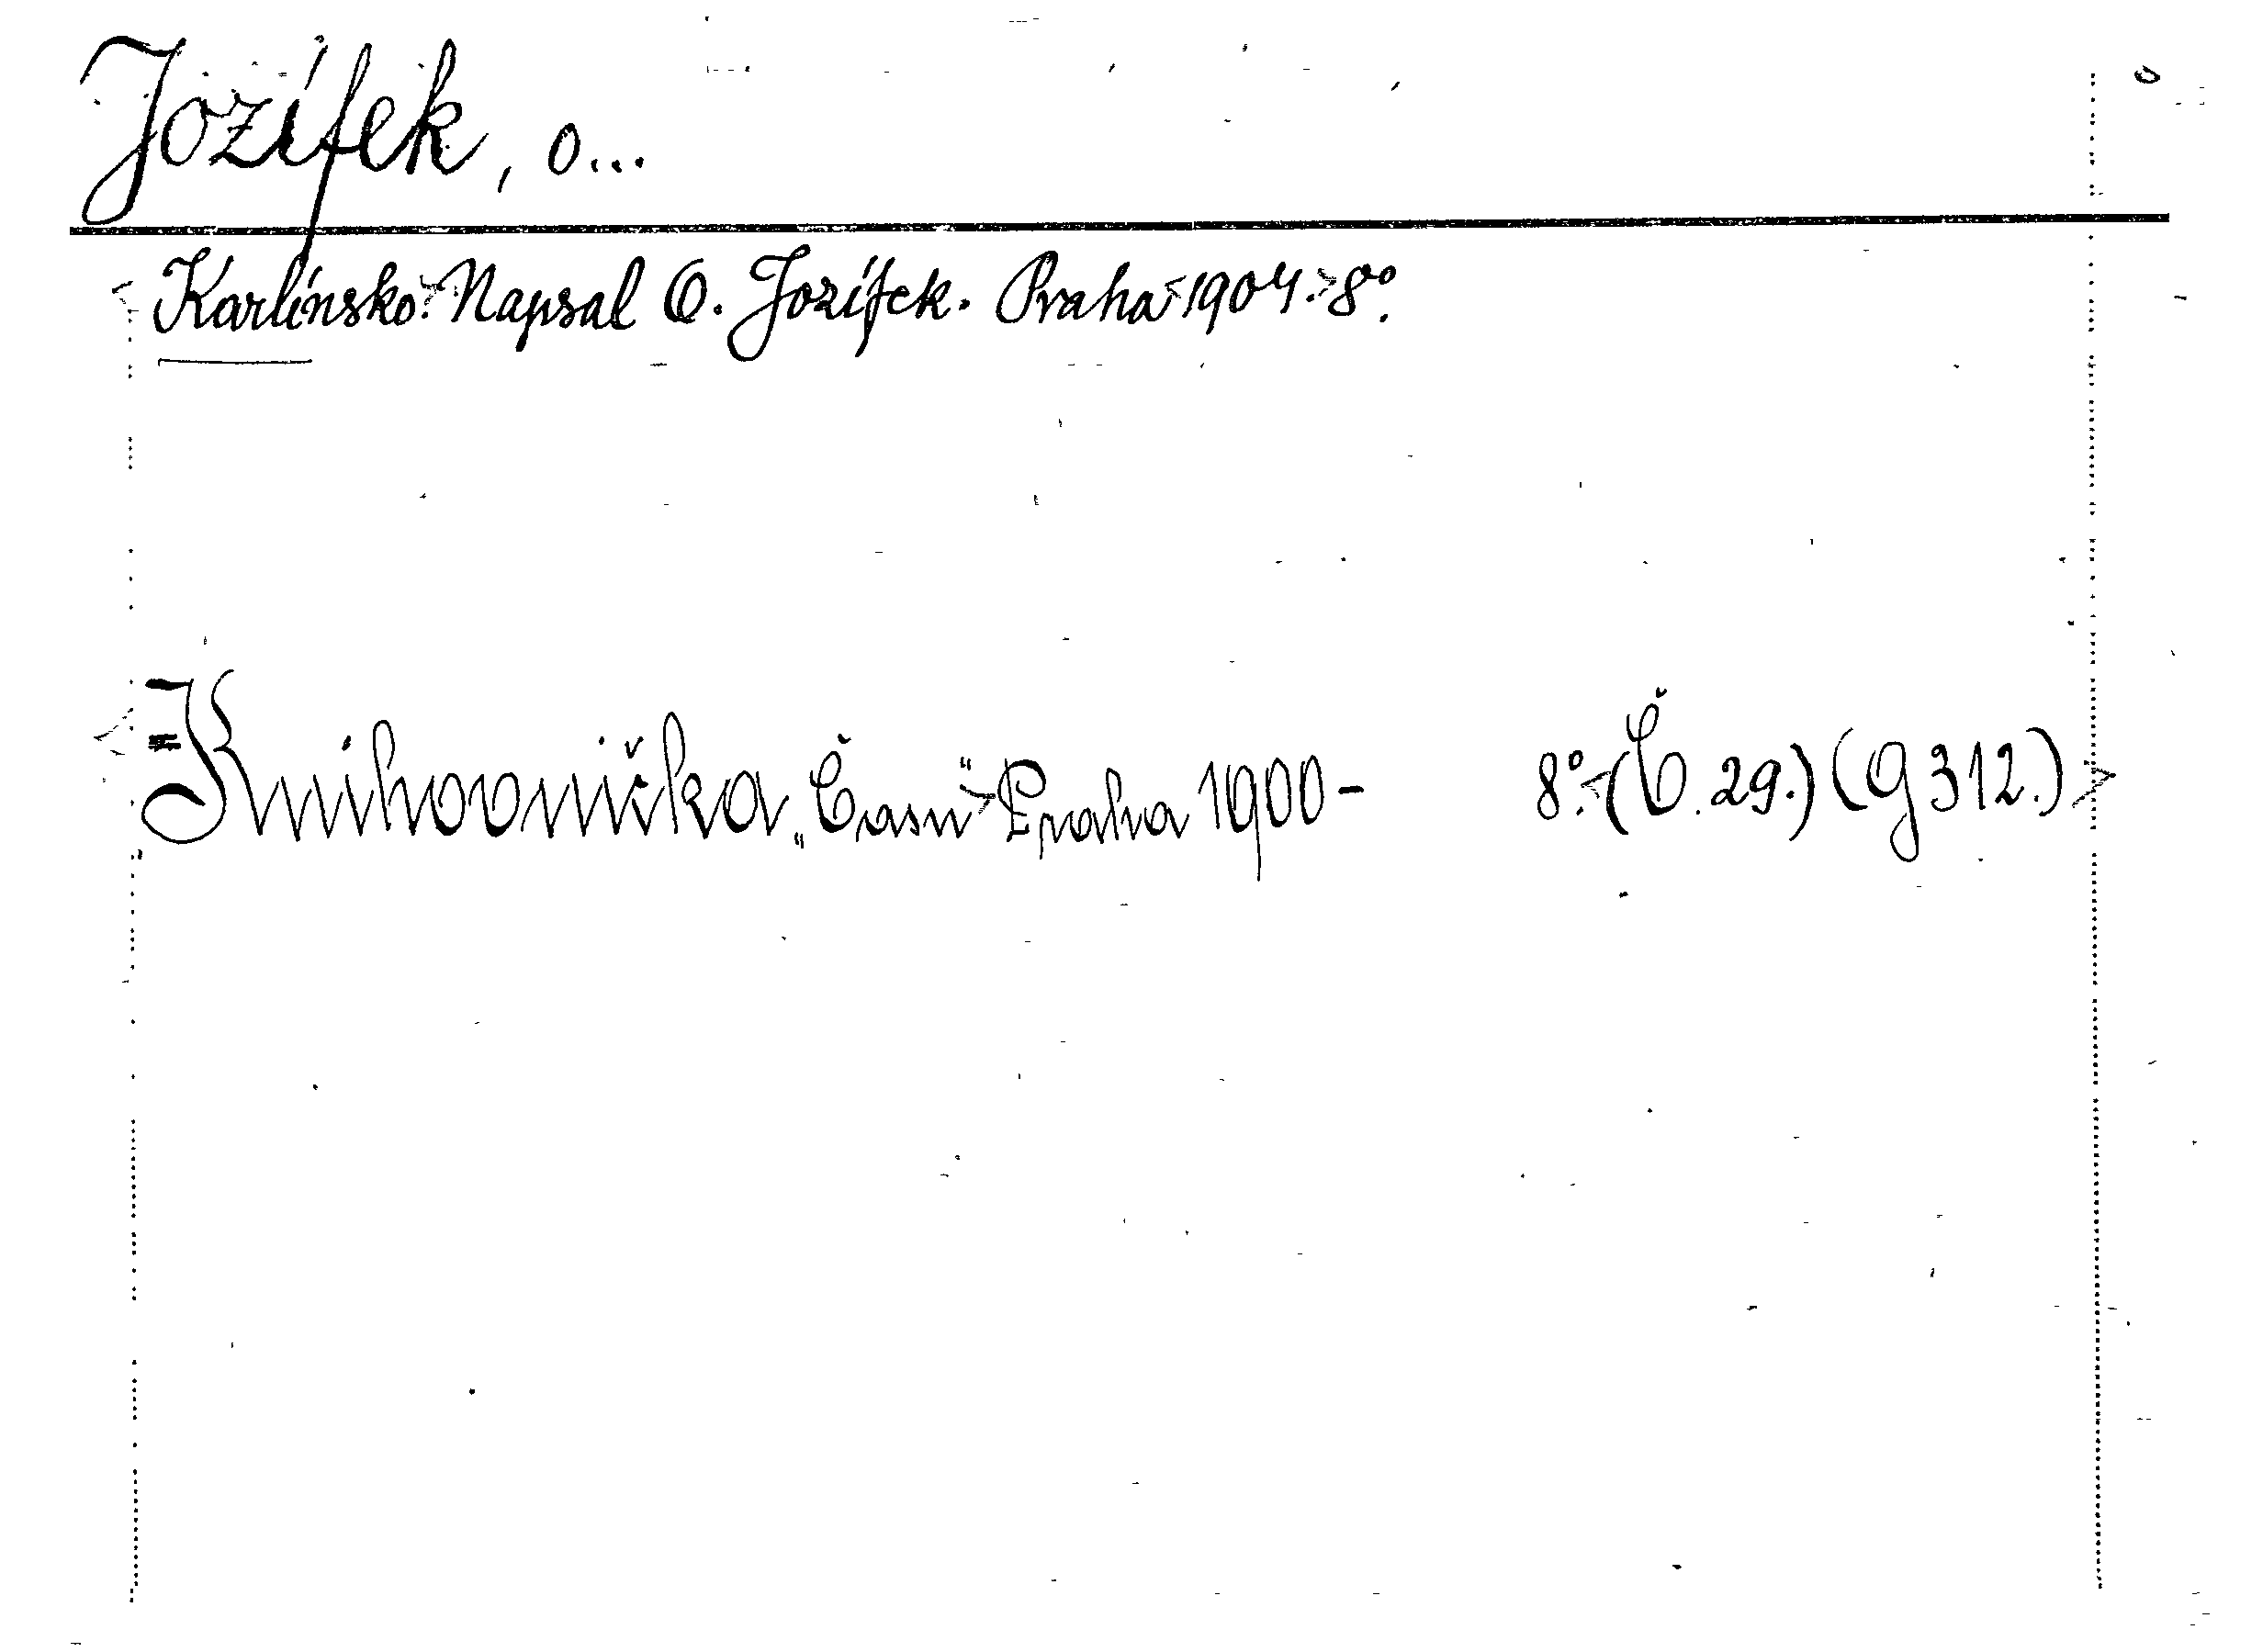 Jozífek, O...
<Karlínsko.> Napsal O. Jozífek. Praha <1904.> 8°.
<= Knihovnička „Času“> Praha 1900- 8°. <(Č. 29.) (9 312.)>